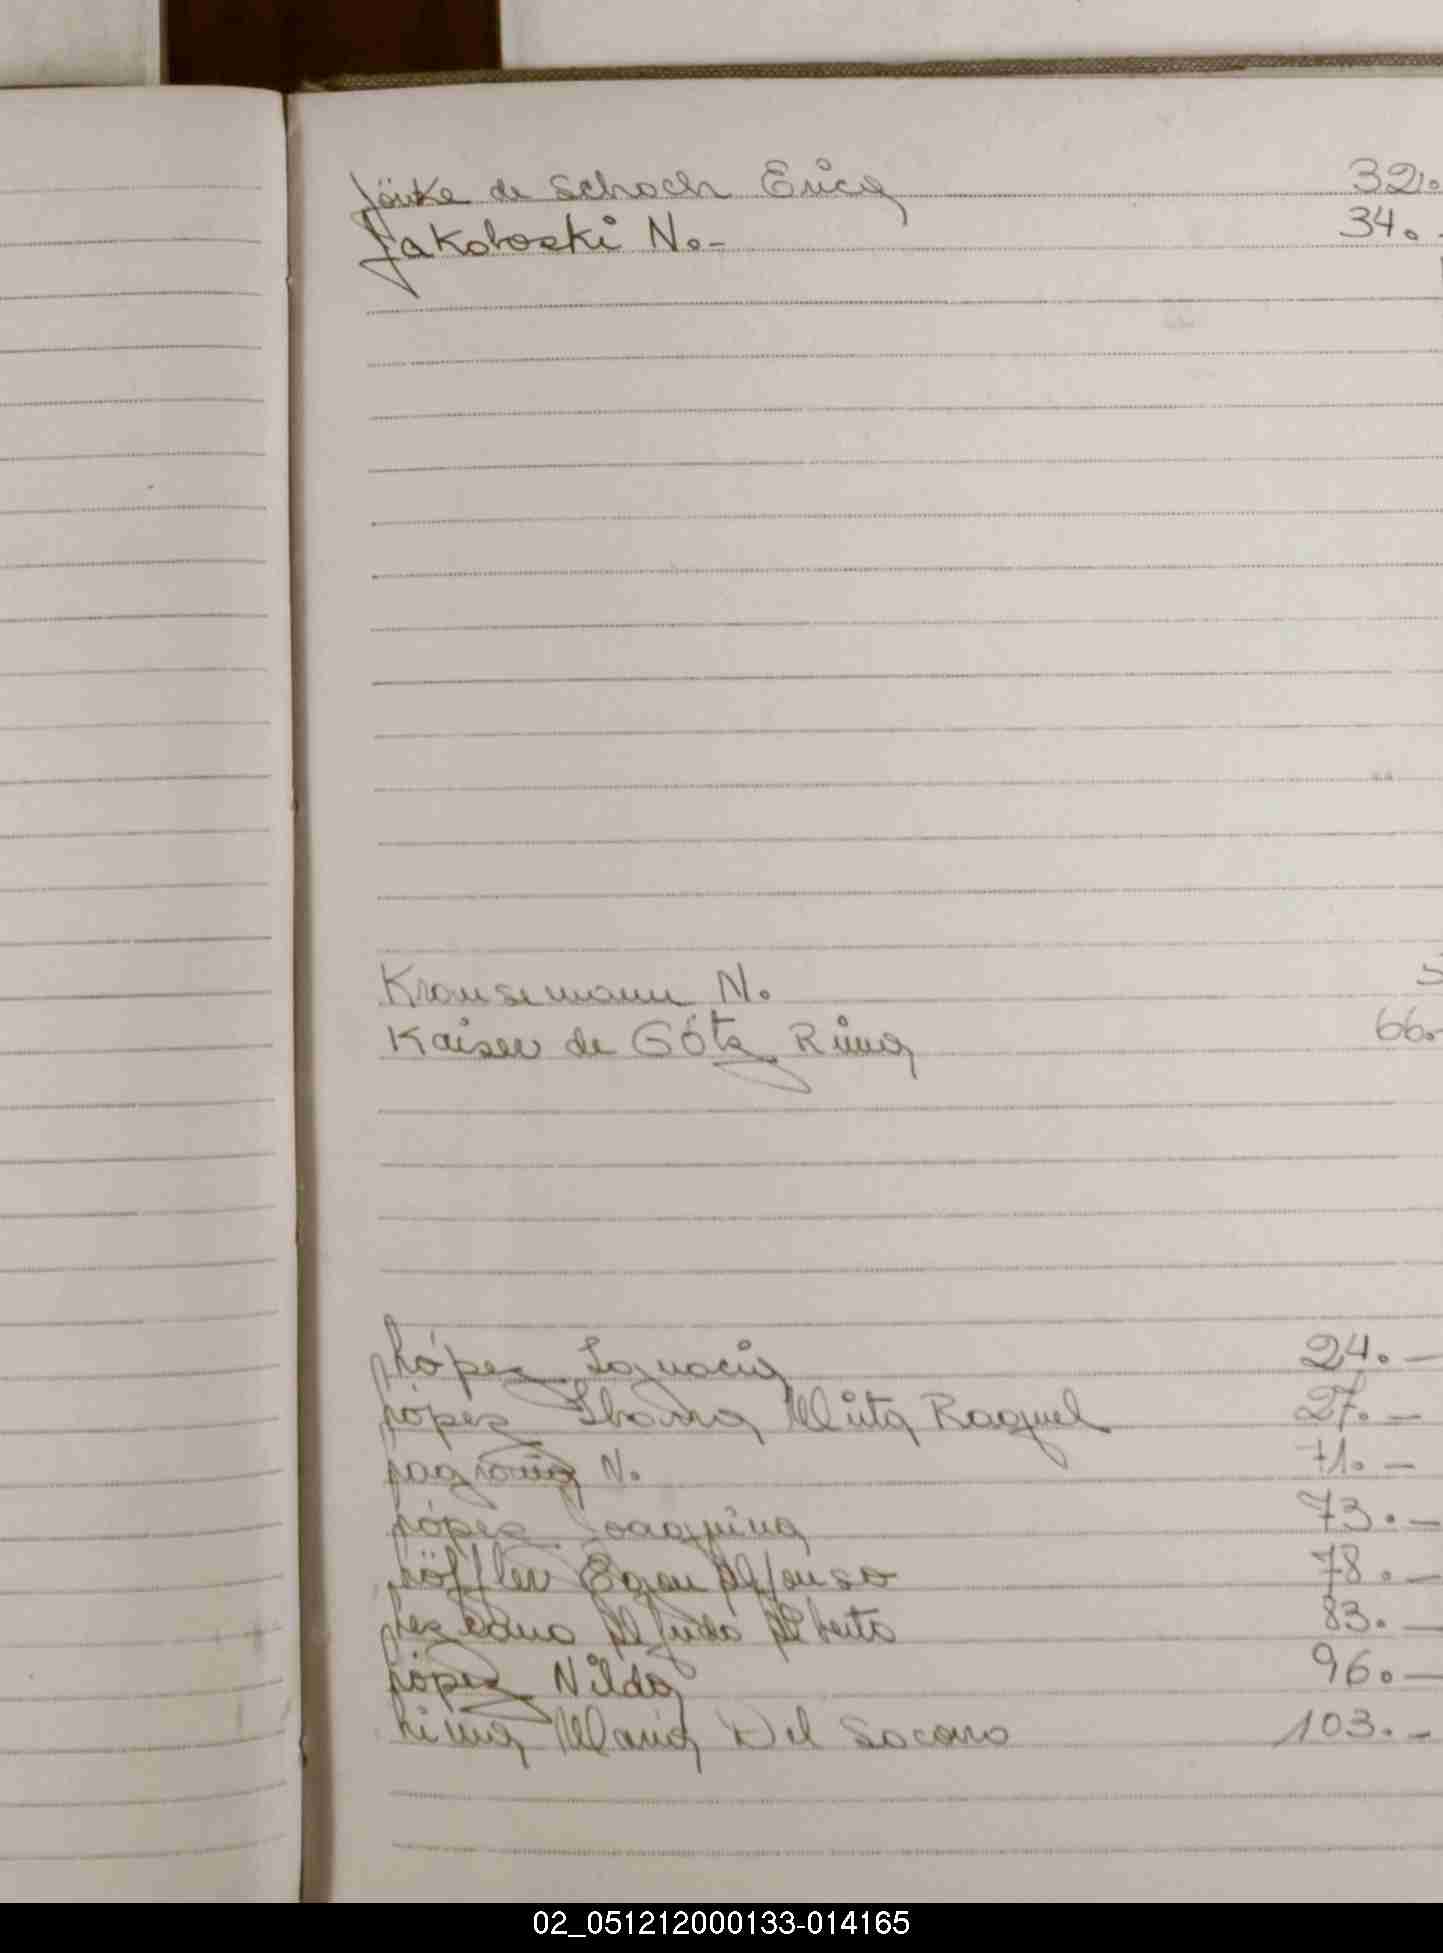 Jönke de Schoch Erica 32.
Jakoboski N.- 34.-
Krausemann N. 5
Kaiser de Götz Rima 66.-
López Ignacia 24.-
López Ibarra Mirta Raquel 27.-
N. 71.-
López Joaquina 73.-
Löffler Egon Alfonso 78.-
Lezcano Alfredo Alberto 83.-
López Nilda 96.-
Lima Maria Del Socorro 103.-
02_051212000133-014165